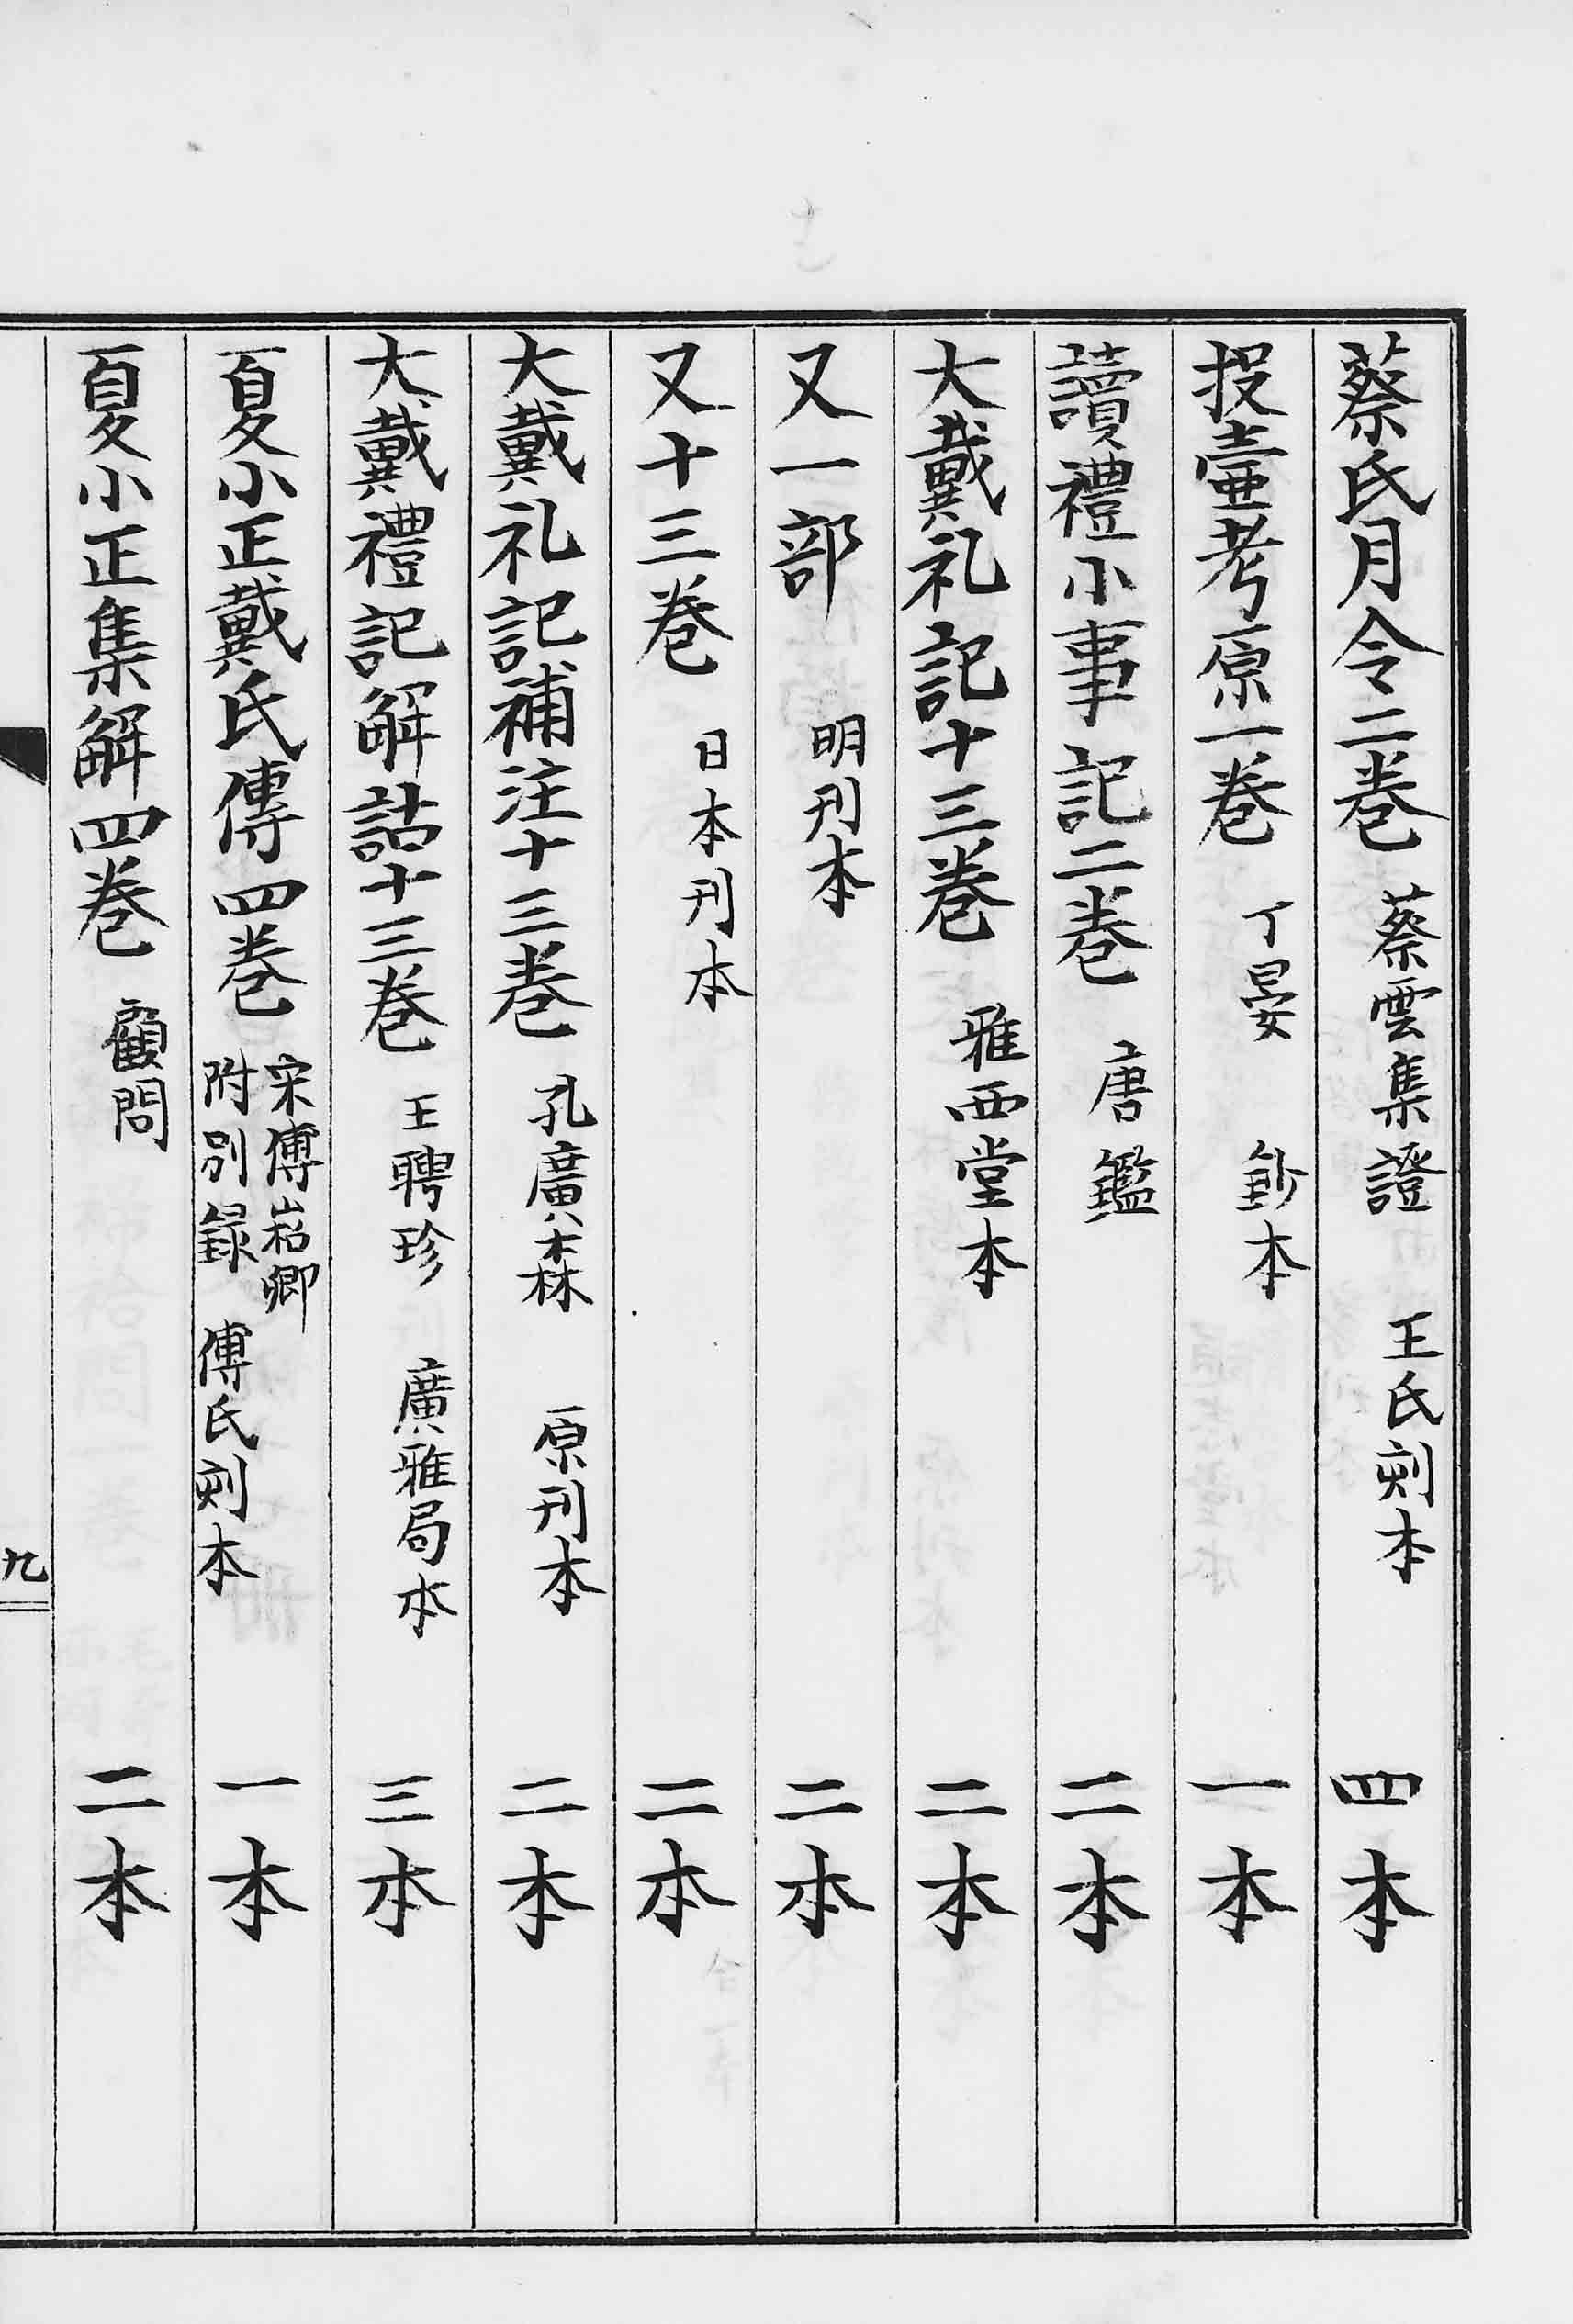 蔡氏月令二卷 蔡雲集證 王氏刻本 四本
投壷考原一卷 丁晏 鈔本 一本
讀禮小事記二卷 唐鑑 二本
大戴礼記十三卷 雅西堂本 二本
又一部 明刊本 二本
又十三卷 日本刊本 二本
大戴礼記補注十三卷 孔廣森 原刊本 二本
大戴禮記解詁十三卷 王聘珍 廣雅局本 三本
夏小正戴氏傳四卷 宋傅崧卿 附別録 傅氏刻本 一本
夏小正集解四卷 顧問 二本
九